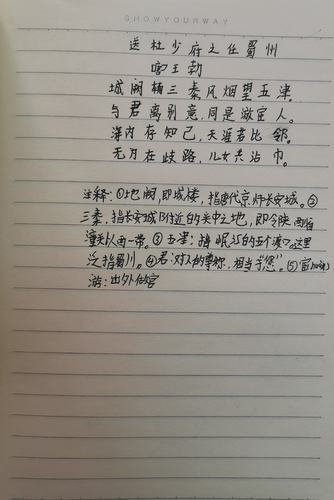 SHOWYOURWAY
送杜少府之任蜀州
唐王勃
城阙辅三秦,风烟望五津。
与君离别意,同是宦定人。
海内存知己,天涯若比邻。
无为在歧路,儿女共沾巾。
注释:①城阙,即城楼,指唐代京师长安城。②
三秦,指长安城附近的关中之地,即今陕西省
潼关以西一带。③五津:指岷江的五个渡口。这里
泛指蜀川。④君:对人的尊称,相当于"您"。⑤宦
游:出外做官